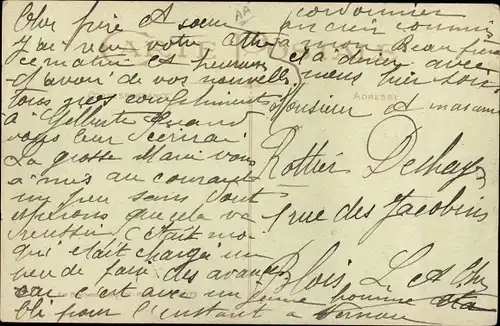 Cher frère et sœur
J'ai reçu votre lettre
ce matin et heureux
d'avoir de vos nouvelles
tous nos compliments
à Gilberte quand
vous leur
La grosse Marie vous
a mis au courant
un peu sans dout
espérons que cela va
réussir c'était moi
qui était chargé un
peu de faire des avances
car c'est avec un
jeune homme
pour l'instant à
cordonnier
ancien commis
a mon beau frère
et a diner avec
nous hier soir
AA
CARTE POSTALE
CORRESPONDANCE
ADRESSE
Monsieur et madame
Rottier Deshayes
rue des Jacobins
Blois L. et Cher